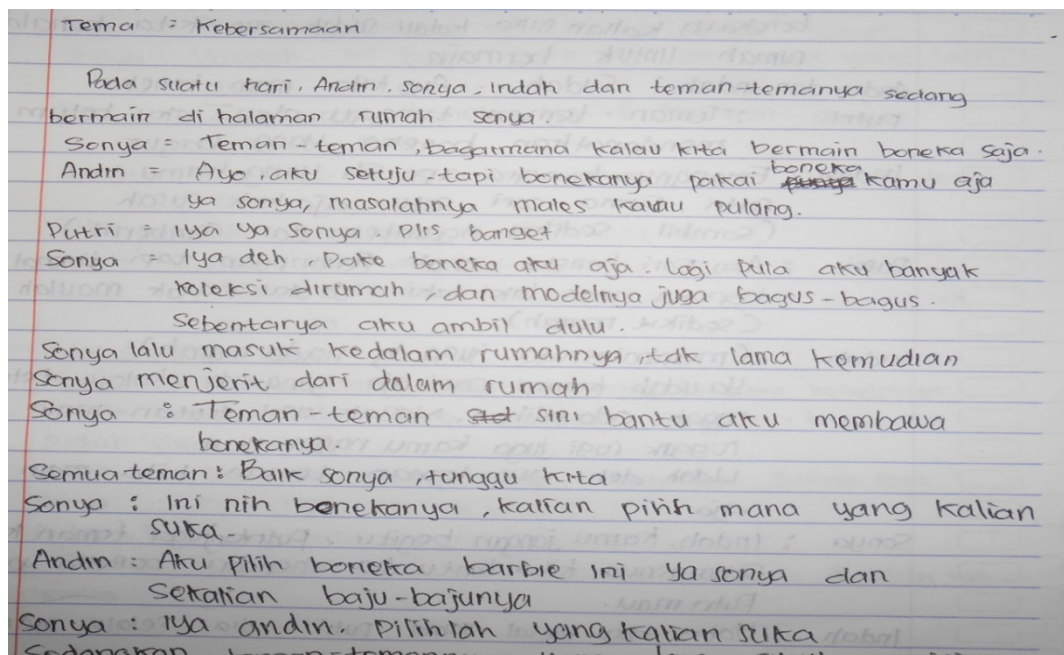 Tema : Kebersamaan
Pada suatu hari, Andin, sonya, indah dan teman-temanya sedang
bermain di halaman rumah sonya.
Sonya : Teman-teman, bagaimana kalau kita bermain boneka saja.
Andin : Ayo, aku setuju, tapi bonekanya pakai boneka kamu aja
ya sonya, masalahnya males kalau pulang.
Putri : iya ya Sonya. Plis banget
Sonya : Iya deh Pake boneka aku aja lagi pula aku banyak
koleksi dirumah, dan modelnya juga bagus-bagus.
Sebentarya aku ambil dulu.
Sonya lalu masuk kedalam rumahnya, tdk lama kemudian
Sonya menjerit dari dalam rumah
Sonya : Teman-teman sini bantu aku membawa
bonekanya.
Semua teman : Baik sonya, tunggu kita
Sonya : Ini nih bonekanya, kalian pilih mana yang kalian
suka.
Andin : Aku pilih boneka barbie ini ya sonya dan
Sekalian baju-bajunya
Sonya : iya andin. Pilihlah yang kalian suka